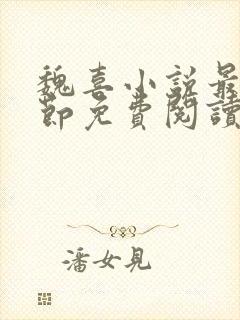 魏喜小说最
節免費閱讀
潘女見